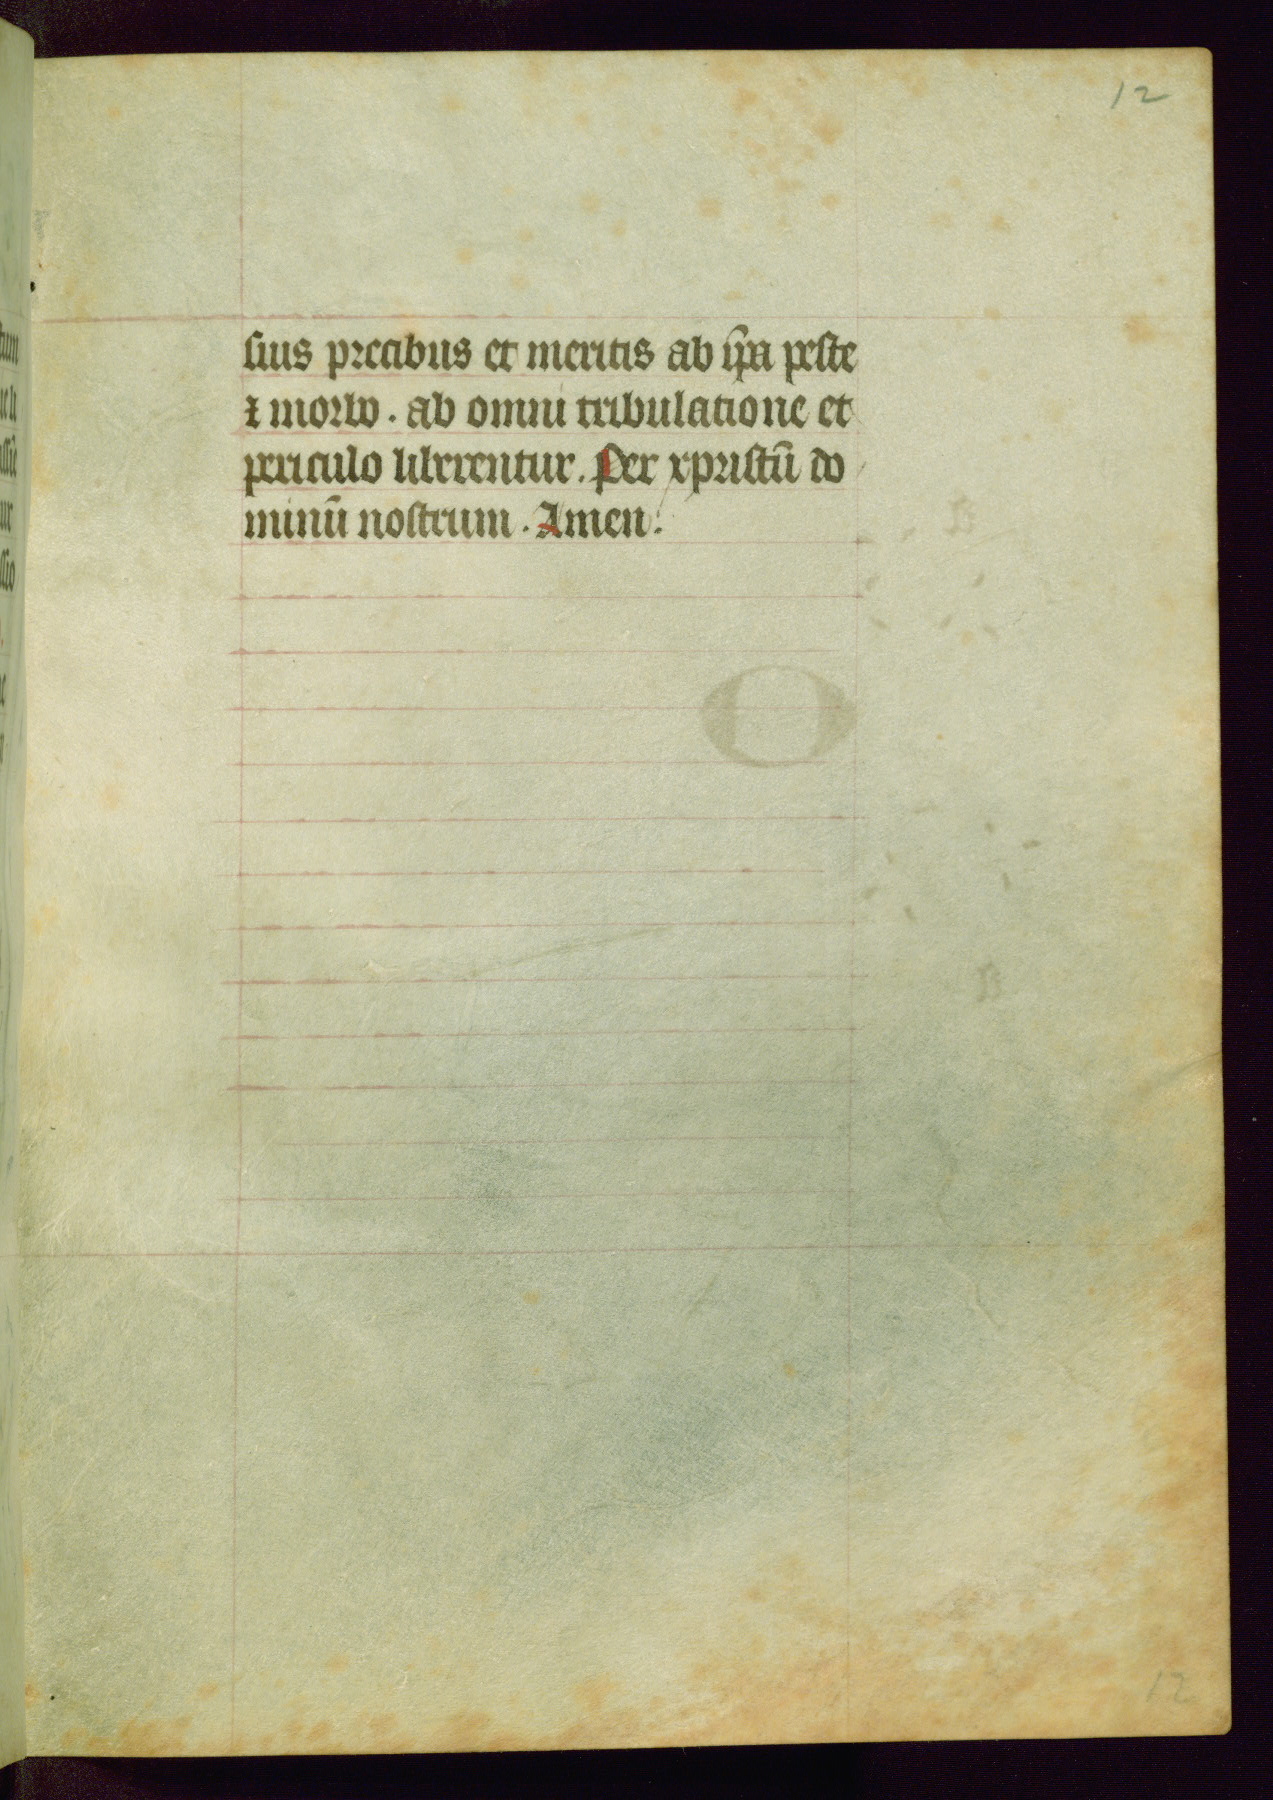 12
suis precibus et meritis ab ip̃a peste
⁊ morbo . ab omni tribulatione et
periculo liberentur . Per xpristū do
minū nostrum . Amen :
12